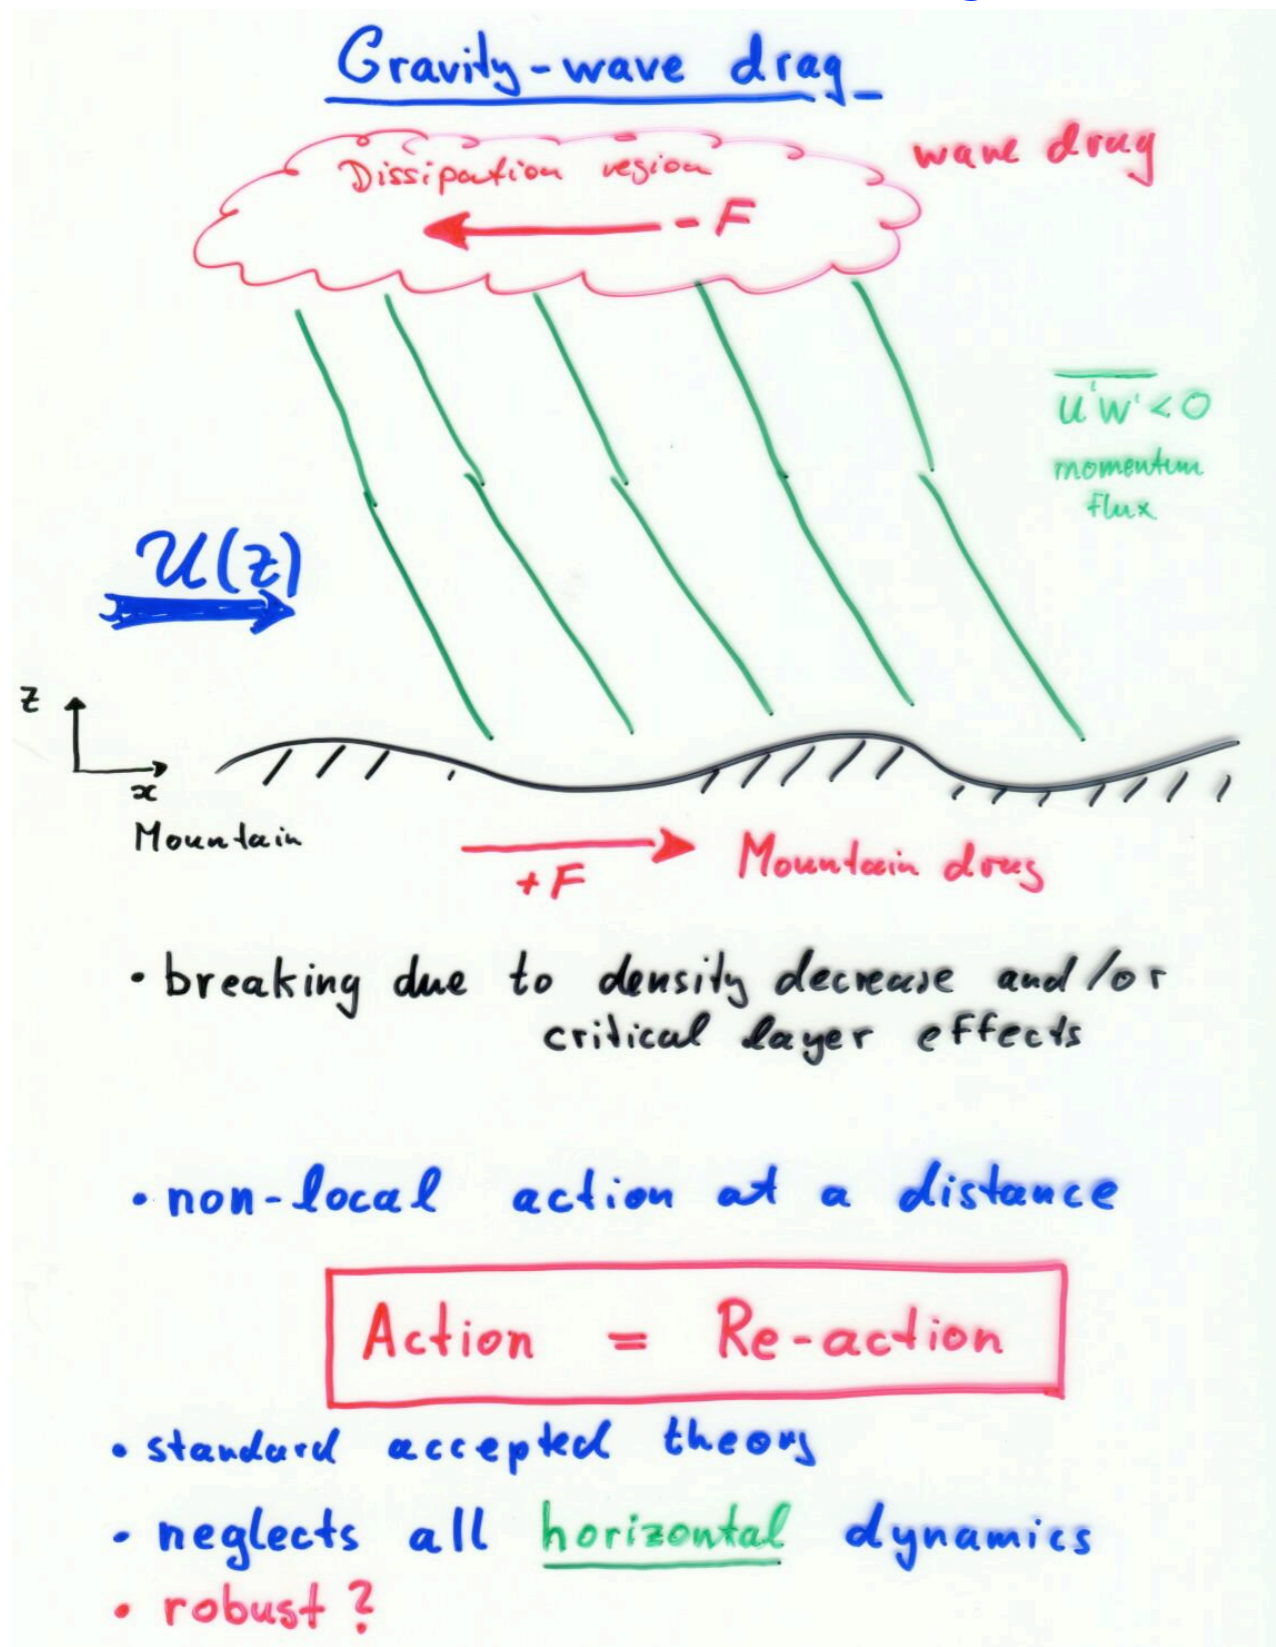 Gravity-wave drag
wave drag
Dissipation region
- F
u'w' < 0
momentum
flux
U(z)
z
x
Mountain
+ F
Mountain drag
• breaking due to density decrease and/or
critical layer effects
• non-local action at a distance
Action = Re-action
• standard accepted theory
• neglects all horizontal dynamics
• robust?